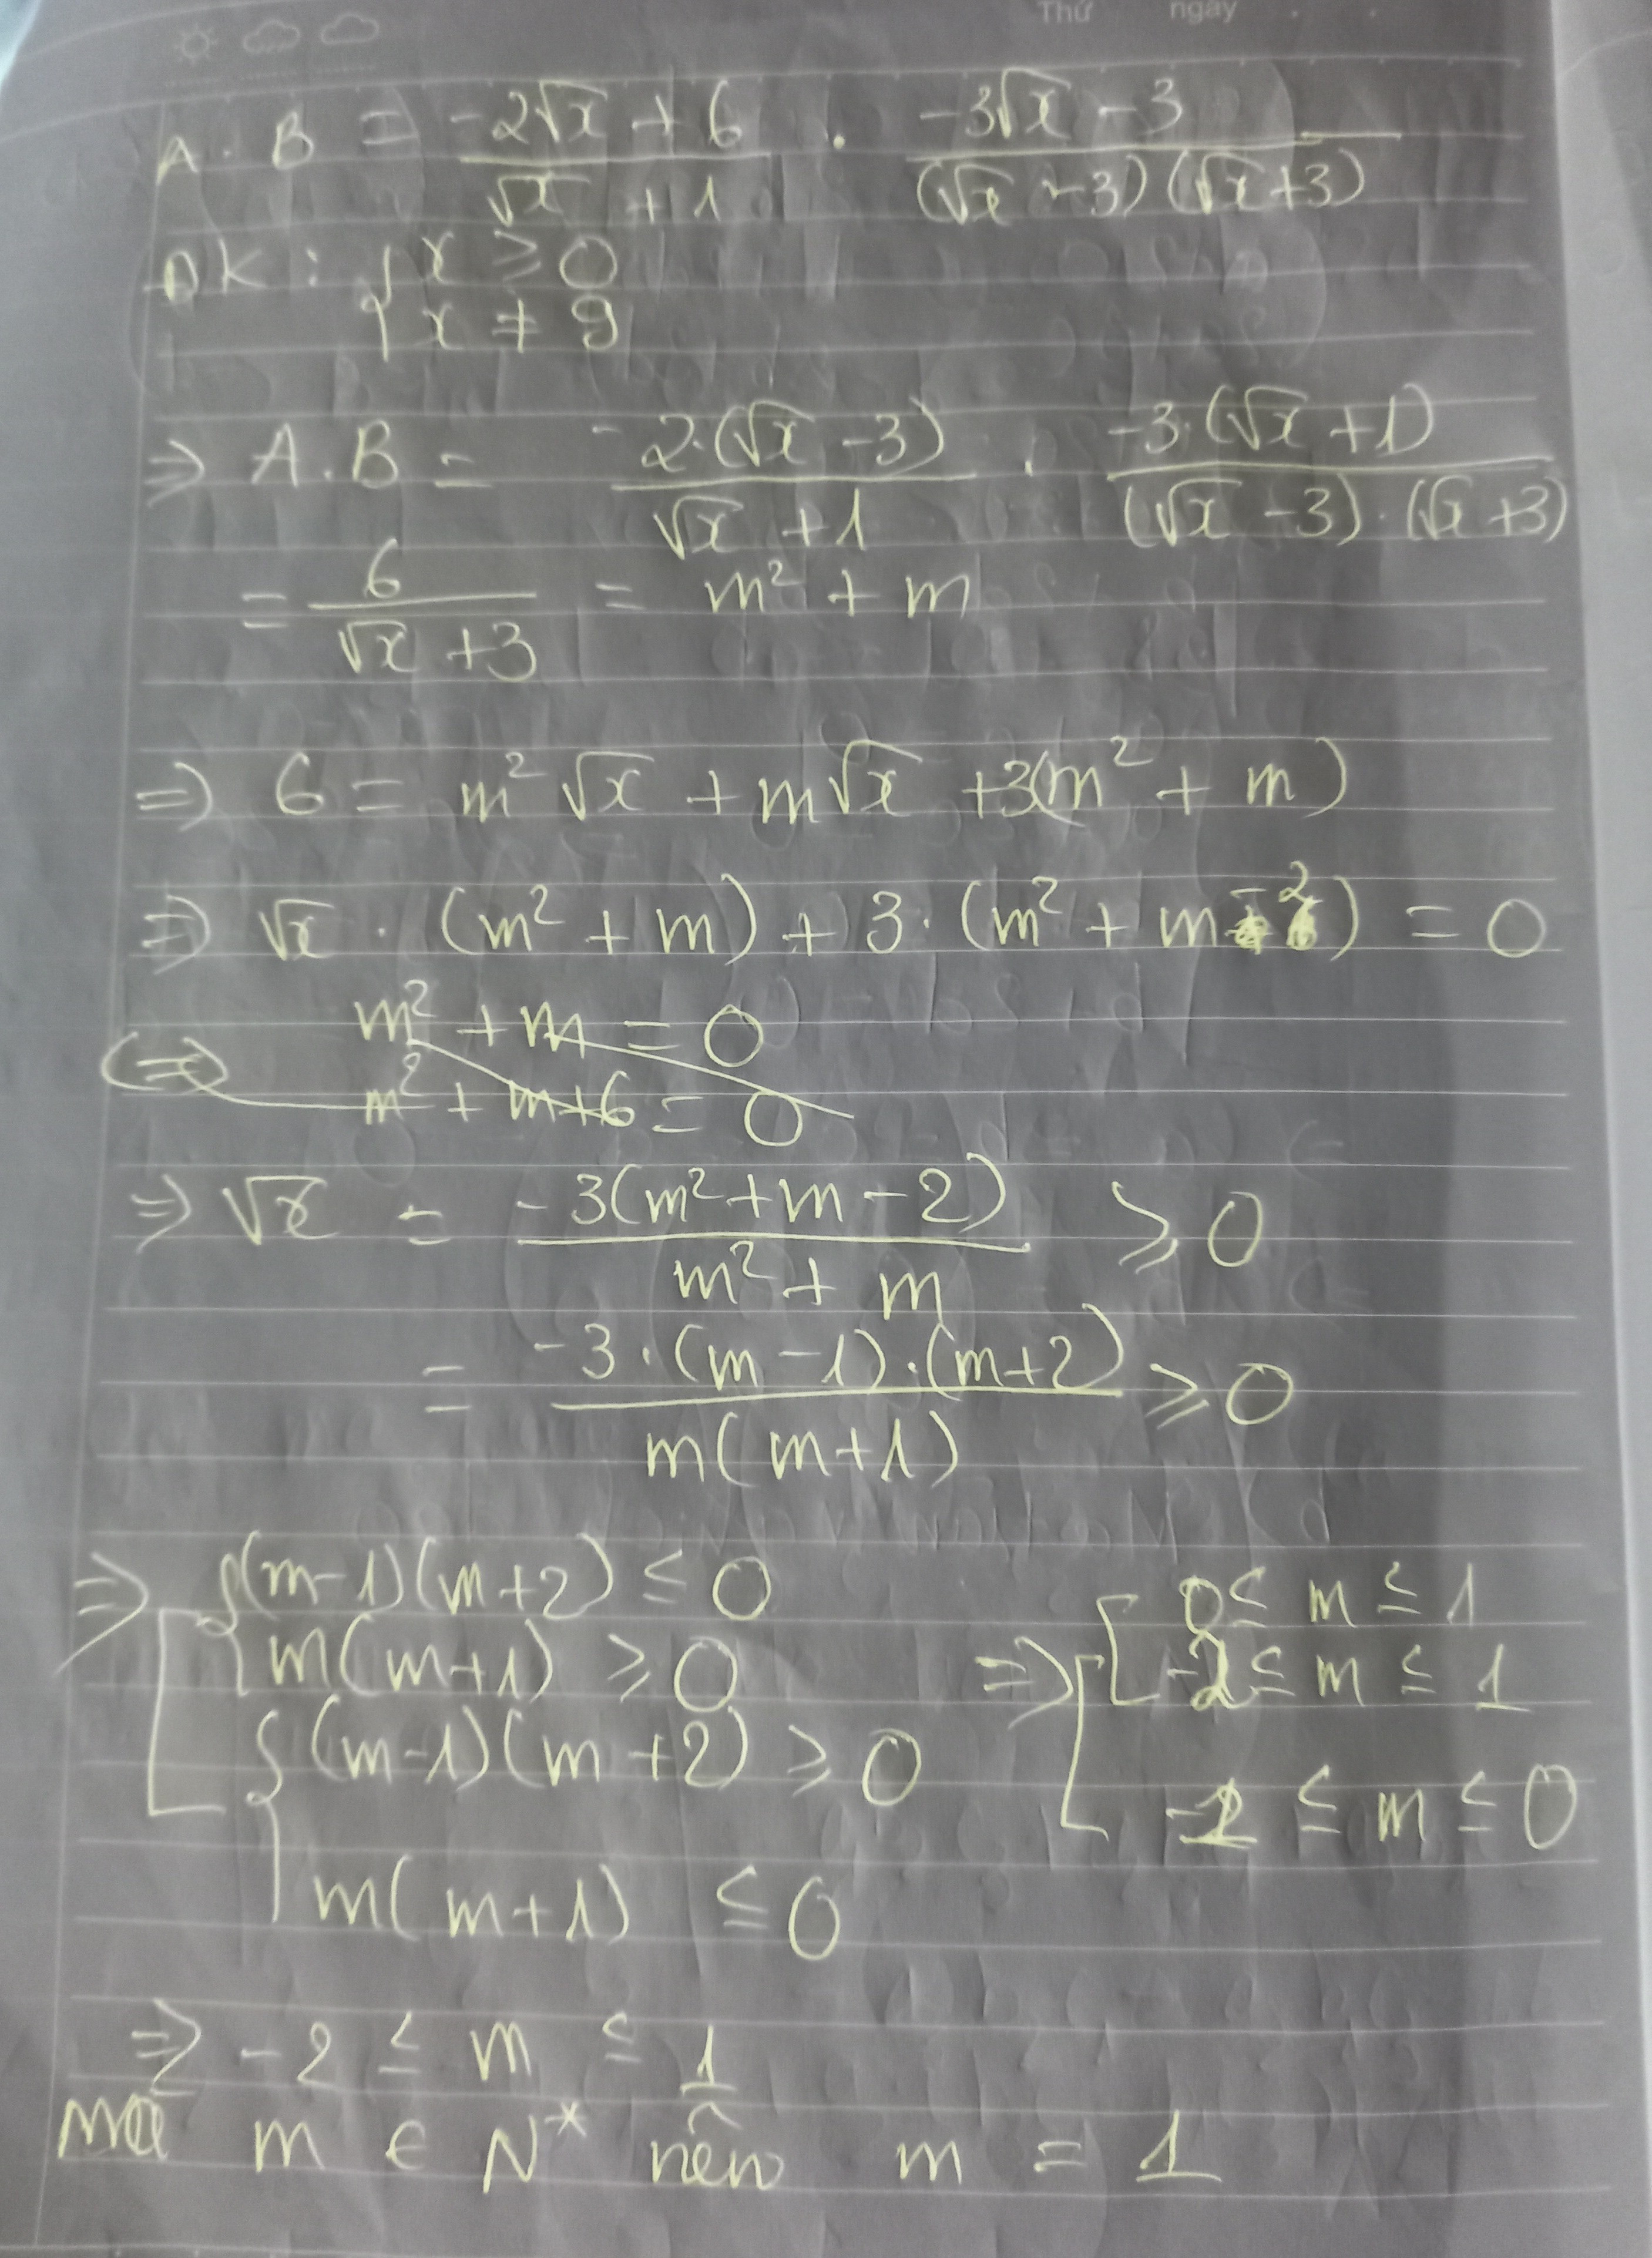 Thứ ngày
A . B = -2√x + 6 / √x + 1 . -3√x - 3 / (√x - 3)(√x + 3)
ĐK : { x ≥ 0
x ≠ 9
⇒ A . B = -2.(√x - 3) / √x + 1 . -3.(√x + 1) / (√x - 3).(√x + 3)
= 6 / √x + 3 = m² + m
⇒ 6 = m²√x + m√x + 3(m² + m)
⇒ √x . (m² + m) + 3.(m² + m - 2) = 0
m² + m = 0
⇔ m² + m + 6 = 0
⇒ √x = -3(m² + m - 2) / m² + m ≥ 0
= -3.(m - 1).(m + 2) / m(m + 1) ≥ 0
⇒ [ { (m - 1)(m + 2) ≤ 0
m(m + 1) ≥ 0
{ (m - 1)(m + 2) ≥ 0
m(m + 1) ≤ 0
⇒ [ [ 0 ≤ m ≤ 1
-2 ≤ m ≤ 1
≤ m ≤ 0
⇒ -2 ≤ m ≤ 1
mà m ∈ N* nên m = 1